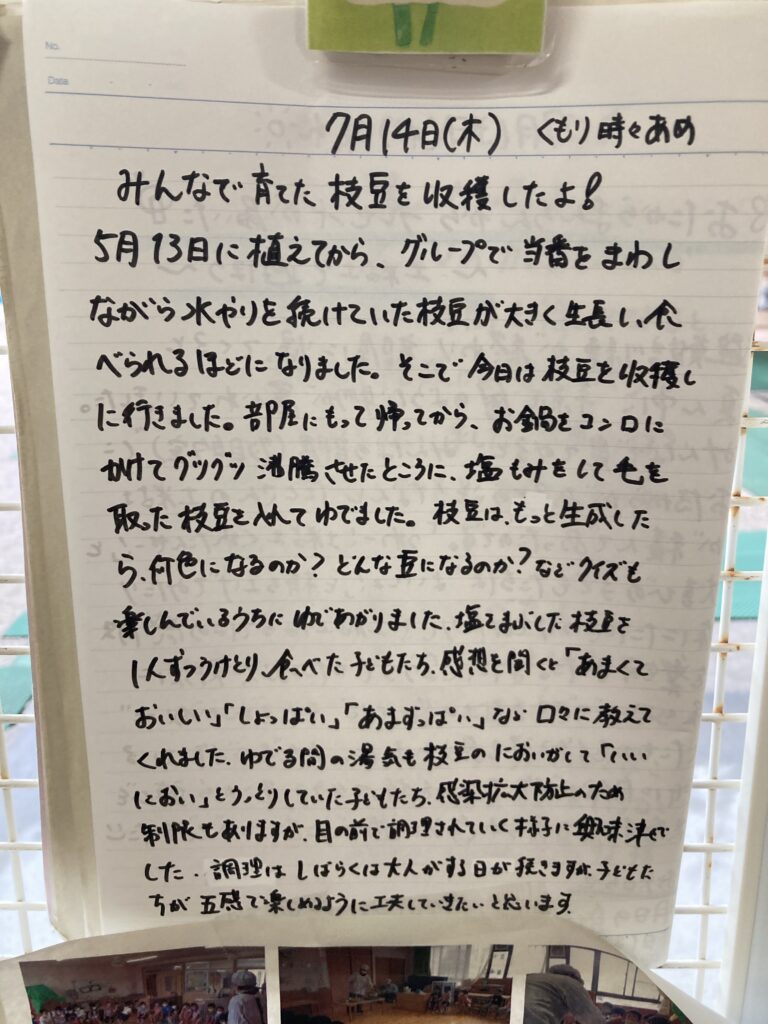 No.
Date
7月14日(木) くもり時々あめ
みんなで育てた枝豆を収穫したよ!
5月13日に植えてから、グループで当番をまわし
ながら水やりを続けていた枝豆が大きく生長し、食
べられるほどになりました。そこで今日は枝豆を収穫し
に行きました。部屋にもって帰ってから、お鍋をコンロに
かけてグツグツ沸騰させたところに、塩もみをして毛を
取った枝豆を入れてゆでました。枝豆は、もっと生成した
ら、何色になるのか?どんな豆になるのか?などクイズも
楽しんでいるうちにゆであがりました。塩をまぶした枝豆を
1人ずつうけとり、食べた子どもたち。感想を聞くと「あまくて
おいしい」「しょっぱい」「あまずっぱい」など口々に教えて
くれました。ゆでる間の湯気も枝豆のにおいがして「いい
におい」とうっとりしていた子どもたち。感染拡大防止のため
制限もありますが、目の前で調理されていく様子に興味津々で
した。調理はしばらくは大人がする日が続きますが、子どもた
ちが五感で楽しめるように工夫していきたいと思います。